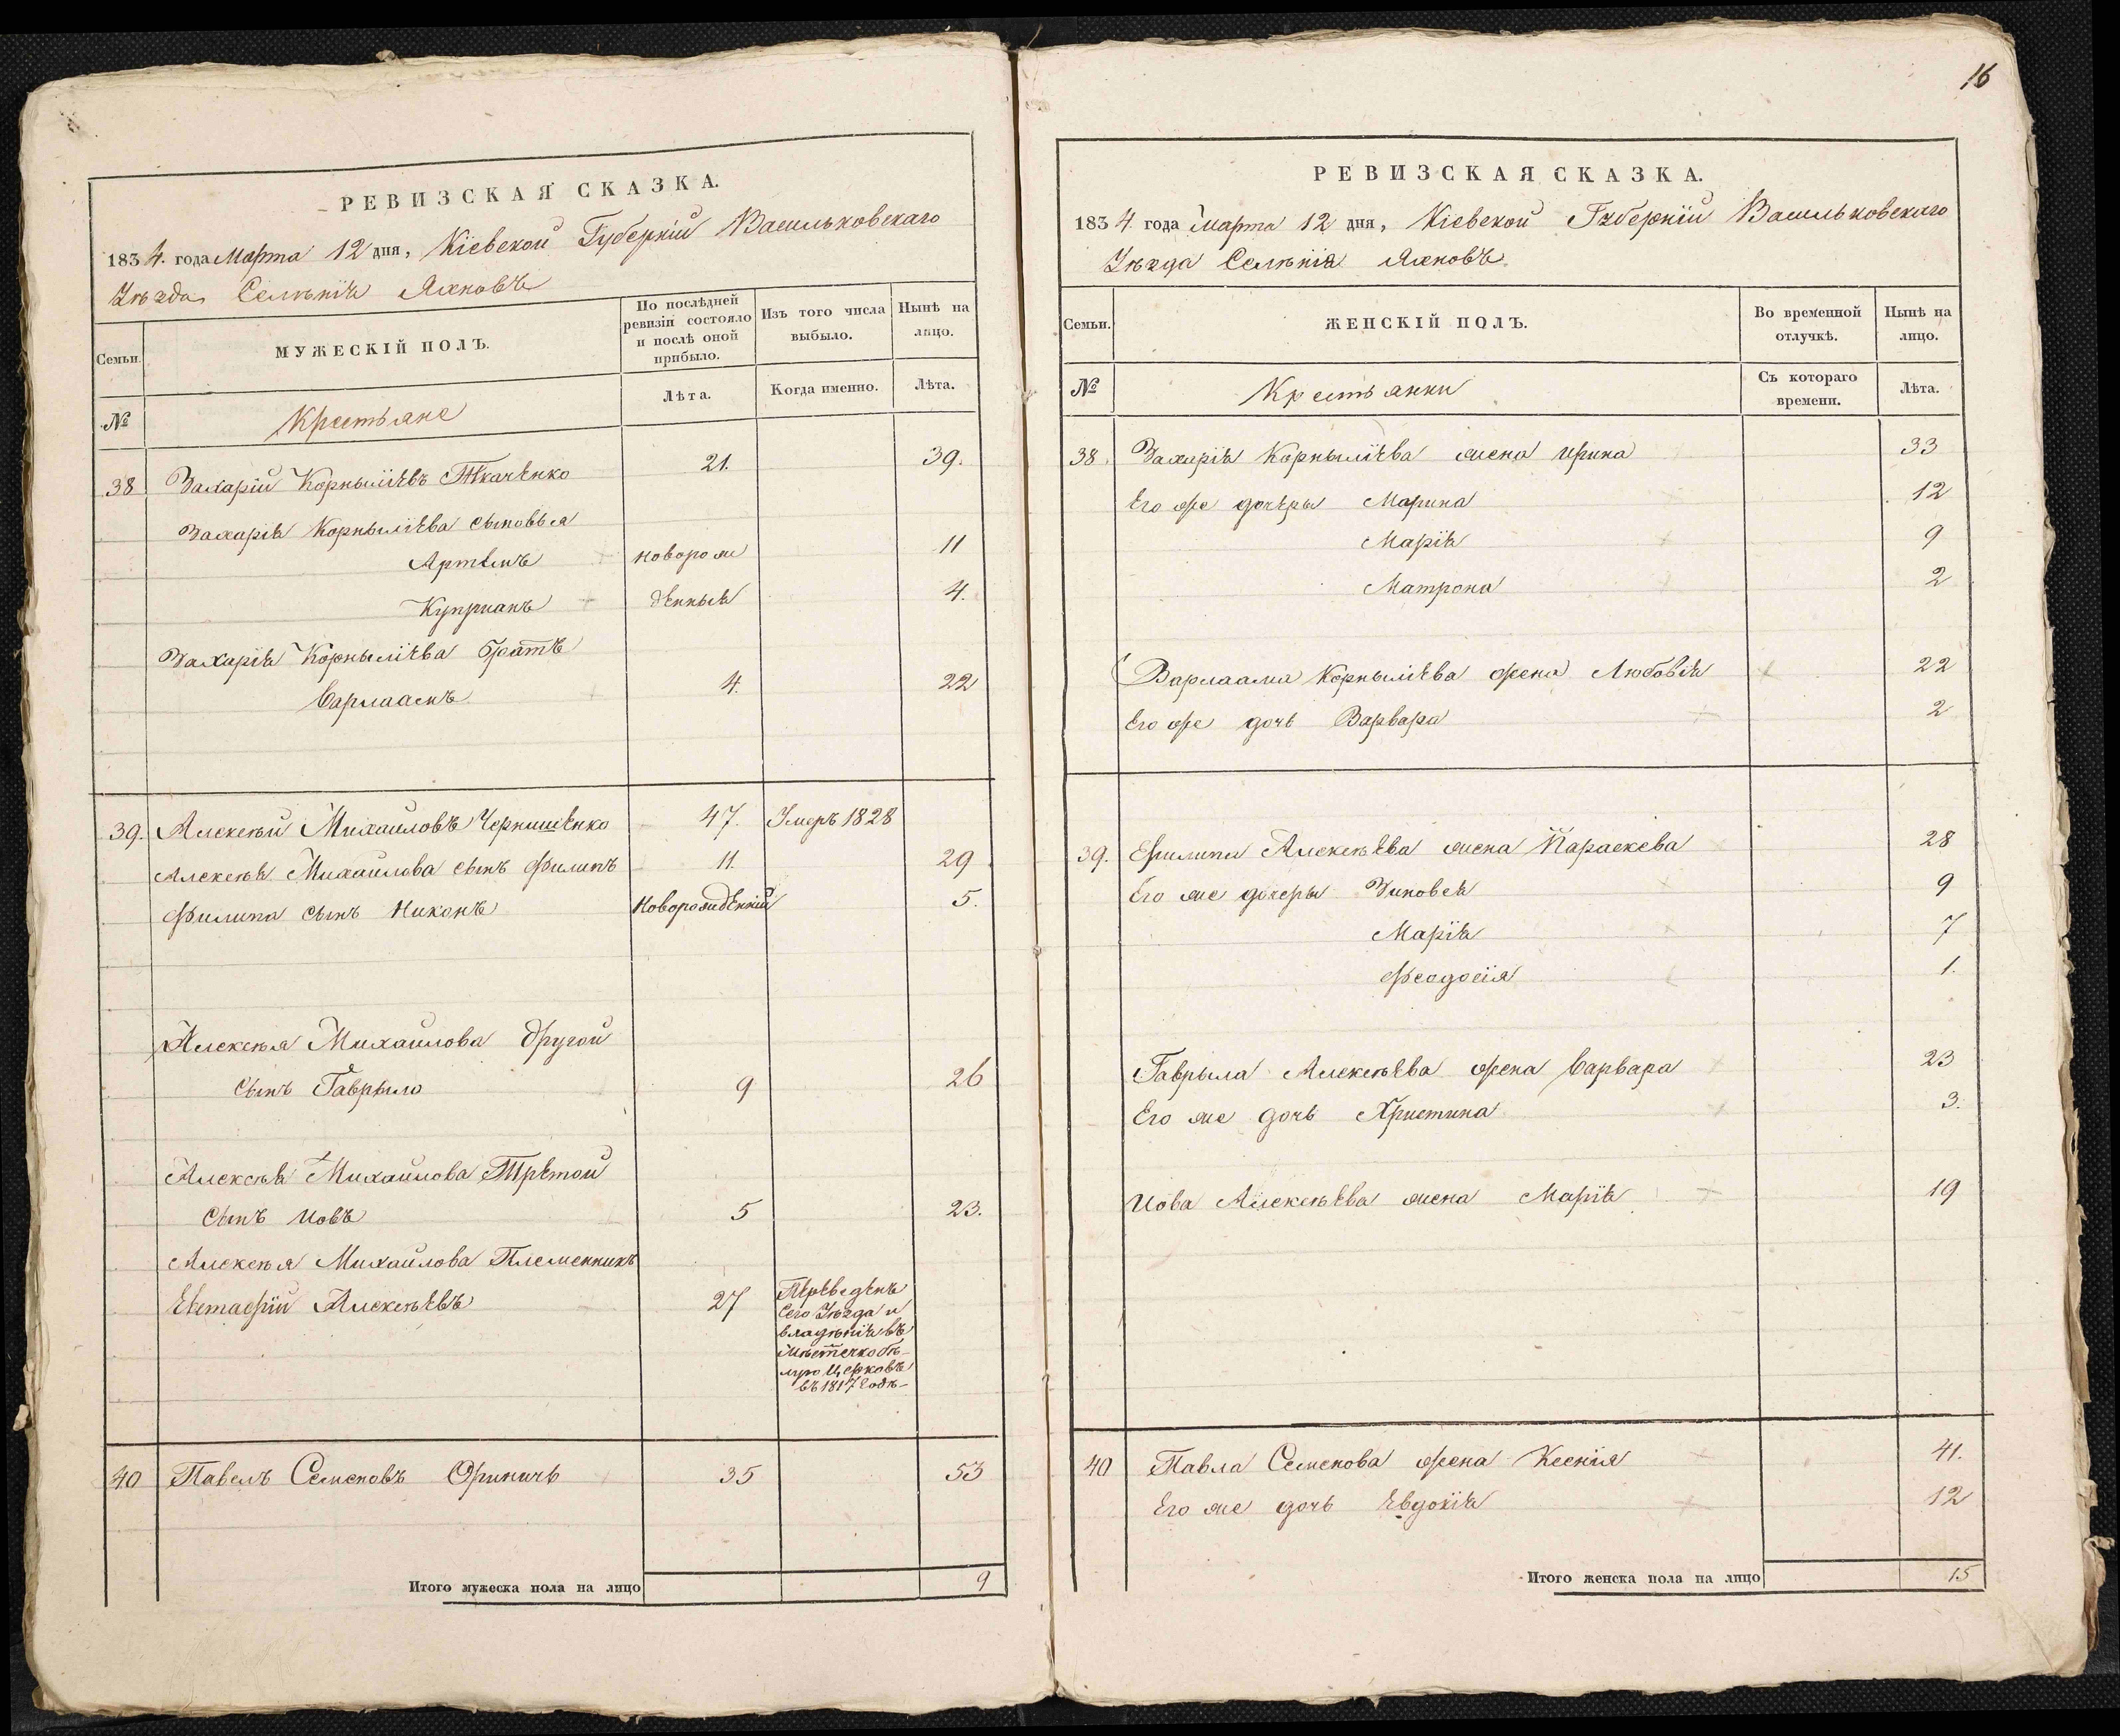 РЕВИЗСКАЯ СКАЗКА.
1834. года Марта 12 дня, Кіевской Губерніи Васильковскаго
Уѣзда Селѣнія Яхновъ
Семьи.
МУЖЕСКІЙ ПОЛЪ.
По послѣдней ревизіи состояло и послѣ оной прибыло.
Изъ того числа выбыло.
Нынѣ на лицо.
№
Крестьяне
Лѣта.
Когда именно.
Лѣта.
38 Захарій Корныліевъ Ткаченко 21. 39.
Захарія Корныліева сыновья
Артемъ новорож 11
Куприанъ денныя 4.
Захарія Корныліева братъ
Варлаамъ 4. 22
39. Алексѣй Михайловъ Чернишенко 47. Умеръ 1828
Алексѣя Михайлова сынъ Филипъ 11. 29
Филипа сынъ Никонъ Новорожденній 5.
Алексѣя Михайлова другой
сынъ Гаврыло 9 26
Алексѣя Михайлова Третой
сынъ Иовъ 5 23.
Алексѣя Михайлова Племенникъ
Евстафій Алексѣевъ 27 Переведенъ
сего Уѣзда и
владѣнія въ
Мѣстечко Бѣ-
лую Церковъ
въ 1817 годѣ-
40 Павелъ Семеновъ Орипичъ 35 53
Итого мужеска пола на лицо 9
16
РЕВИЗСКАЯ СКАЗКА.
1834 года Марта 12 дня, Кіевской Губерніи Васильковскаго
Уѣзда Селѣнія Яхновъ
Семьи.
ЖЕНСКІЙ ПОЛЪ.
Во временной отлучкѣ.
Нынѣ на лицо.
№
Крестьянки
Съ котораго времени.
Лѣта.
38. Захарія Корныліева жена Ирина 33
Его же дочеры Марина 12
Марія 9
Матрона 2
Варлаама Корныліева жена Любовія 22
Его же дочь Варвара 2
39. Филипа Алексѣева жена Параскева 28
Его же дочеры Зиновея 9
Марія 7
Феодосія 1.
Гаврыла Алексѣева жена Варвара 23
Его же дочь Христина 3.
Иова Алексѣева жена Марія 19
40 Павла Семенова жена Ксенія 41.
Его же дочь Евдокія 12
Итого женска пола на лицо 15